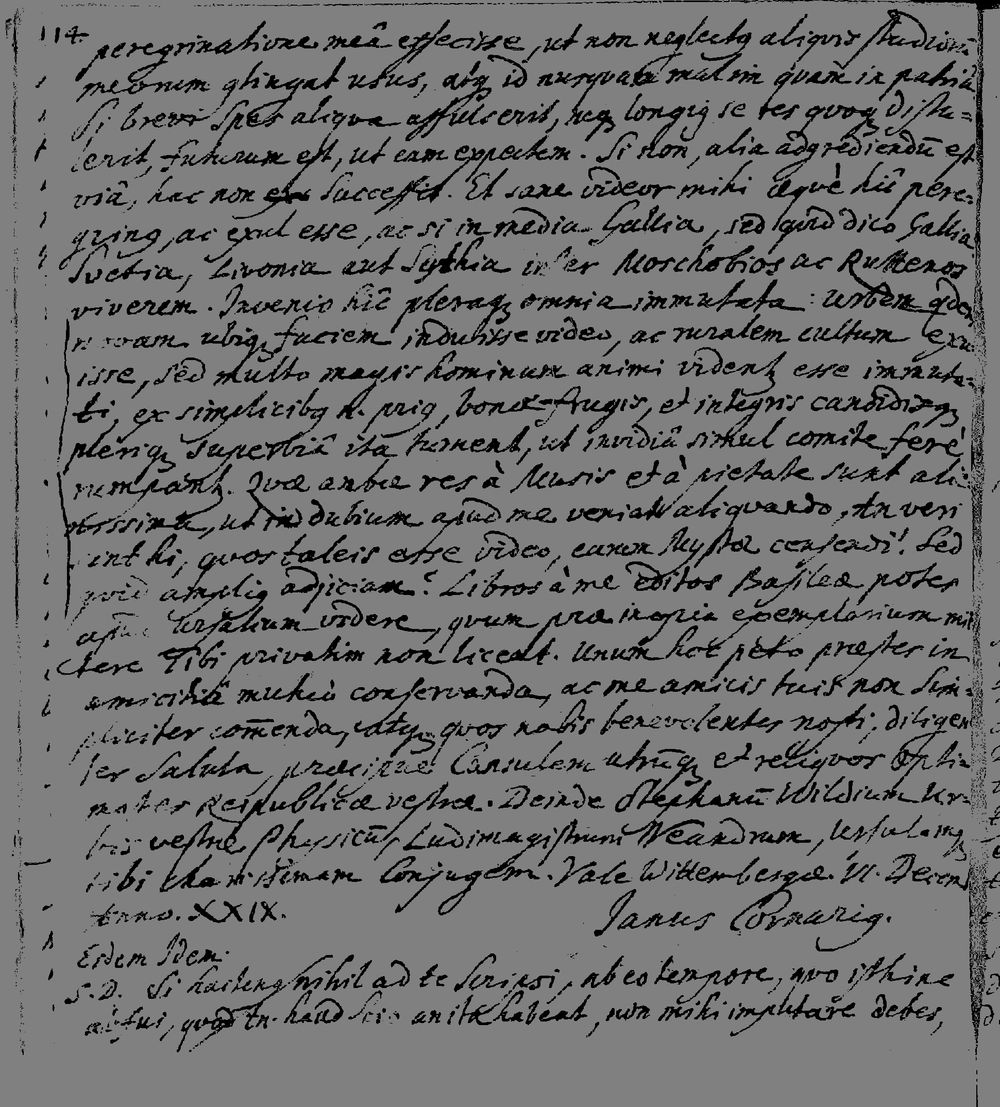 114.
peregrinatione meâ effecisse, ut non neglectq aliquis studiorũ
meorum qtingat usus, atq id nusquam malim quam in patriâ.
Si brevi spes aliqua affulserit, neq longiq se res quoq distu-
lerit, futurum est, ut eam expectem. Si non, alia adgrediendũ est
viâ, hac non successit. Et sane videor mihi æquè hîc pere-
grinq, ac exul esse, ac si in media Gallia, sed quid dico Gallia
Svetia, Livonia aut Sythia inter Moschobios ac Ruttenos
viverem. Invenio hîc pleraq omnia immutata: Urbem qdem
novam ubiq faciem induisse video, ac ruralem cultum exu-
isse, sed multo magis hominum animi videntq esse immuta-
ti, ex simplicibq n. priq, bonæ frugis, et integris candidisq
pleriq superbiâ ita tument, ut invidiâ simul comite ferè
rumpantq. Quæ ambæ res à Musis et à pietate sunt ali-
enissimæ, ut in dubium apud me veniat aliquando, An veri
sint hi, quos taleis esse video, eanon Mystæ censendi? Sed
quid ampliq adjiciam? Libros à me editos Basileæ potes
apud Ursalium videre, quum præ inopia exemplarium mit
tere Tibi privatim non liceat. Unum hoc peto præstes in
amicitiâ mutuò conservanda, ac me amicis tuis non sim-
pliciter com̃enda, atq quos nobis benevolentes nosti, diligen
ter saluta, præcipuè Consulem utrũq et reliquos Opti-
mates Reipublicæ vestræ. Deinde Stephanũ Wildium Ur-
bis vestræ Physicũ, Ludimagistrum Neandrum, Ursulamq
tibi charissimam Conjugem. Vale Wittembergæ. VI. Decemb
Anno. XXIX.
Janus Cornariq.
Eidem Idem.
S. D. Si hactenq nihil ad te scripsi, ab eo tempore, quo isthinc
abfui, quod tn. haud scio an ita habeat, non mihi imputare debes,